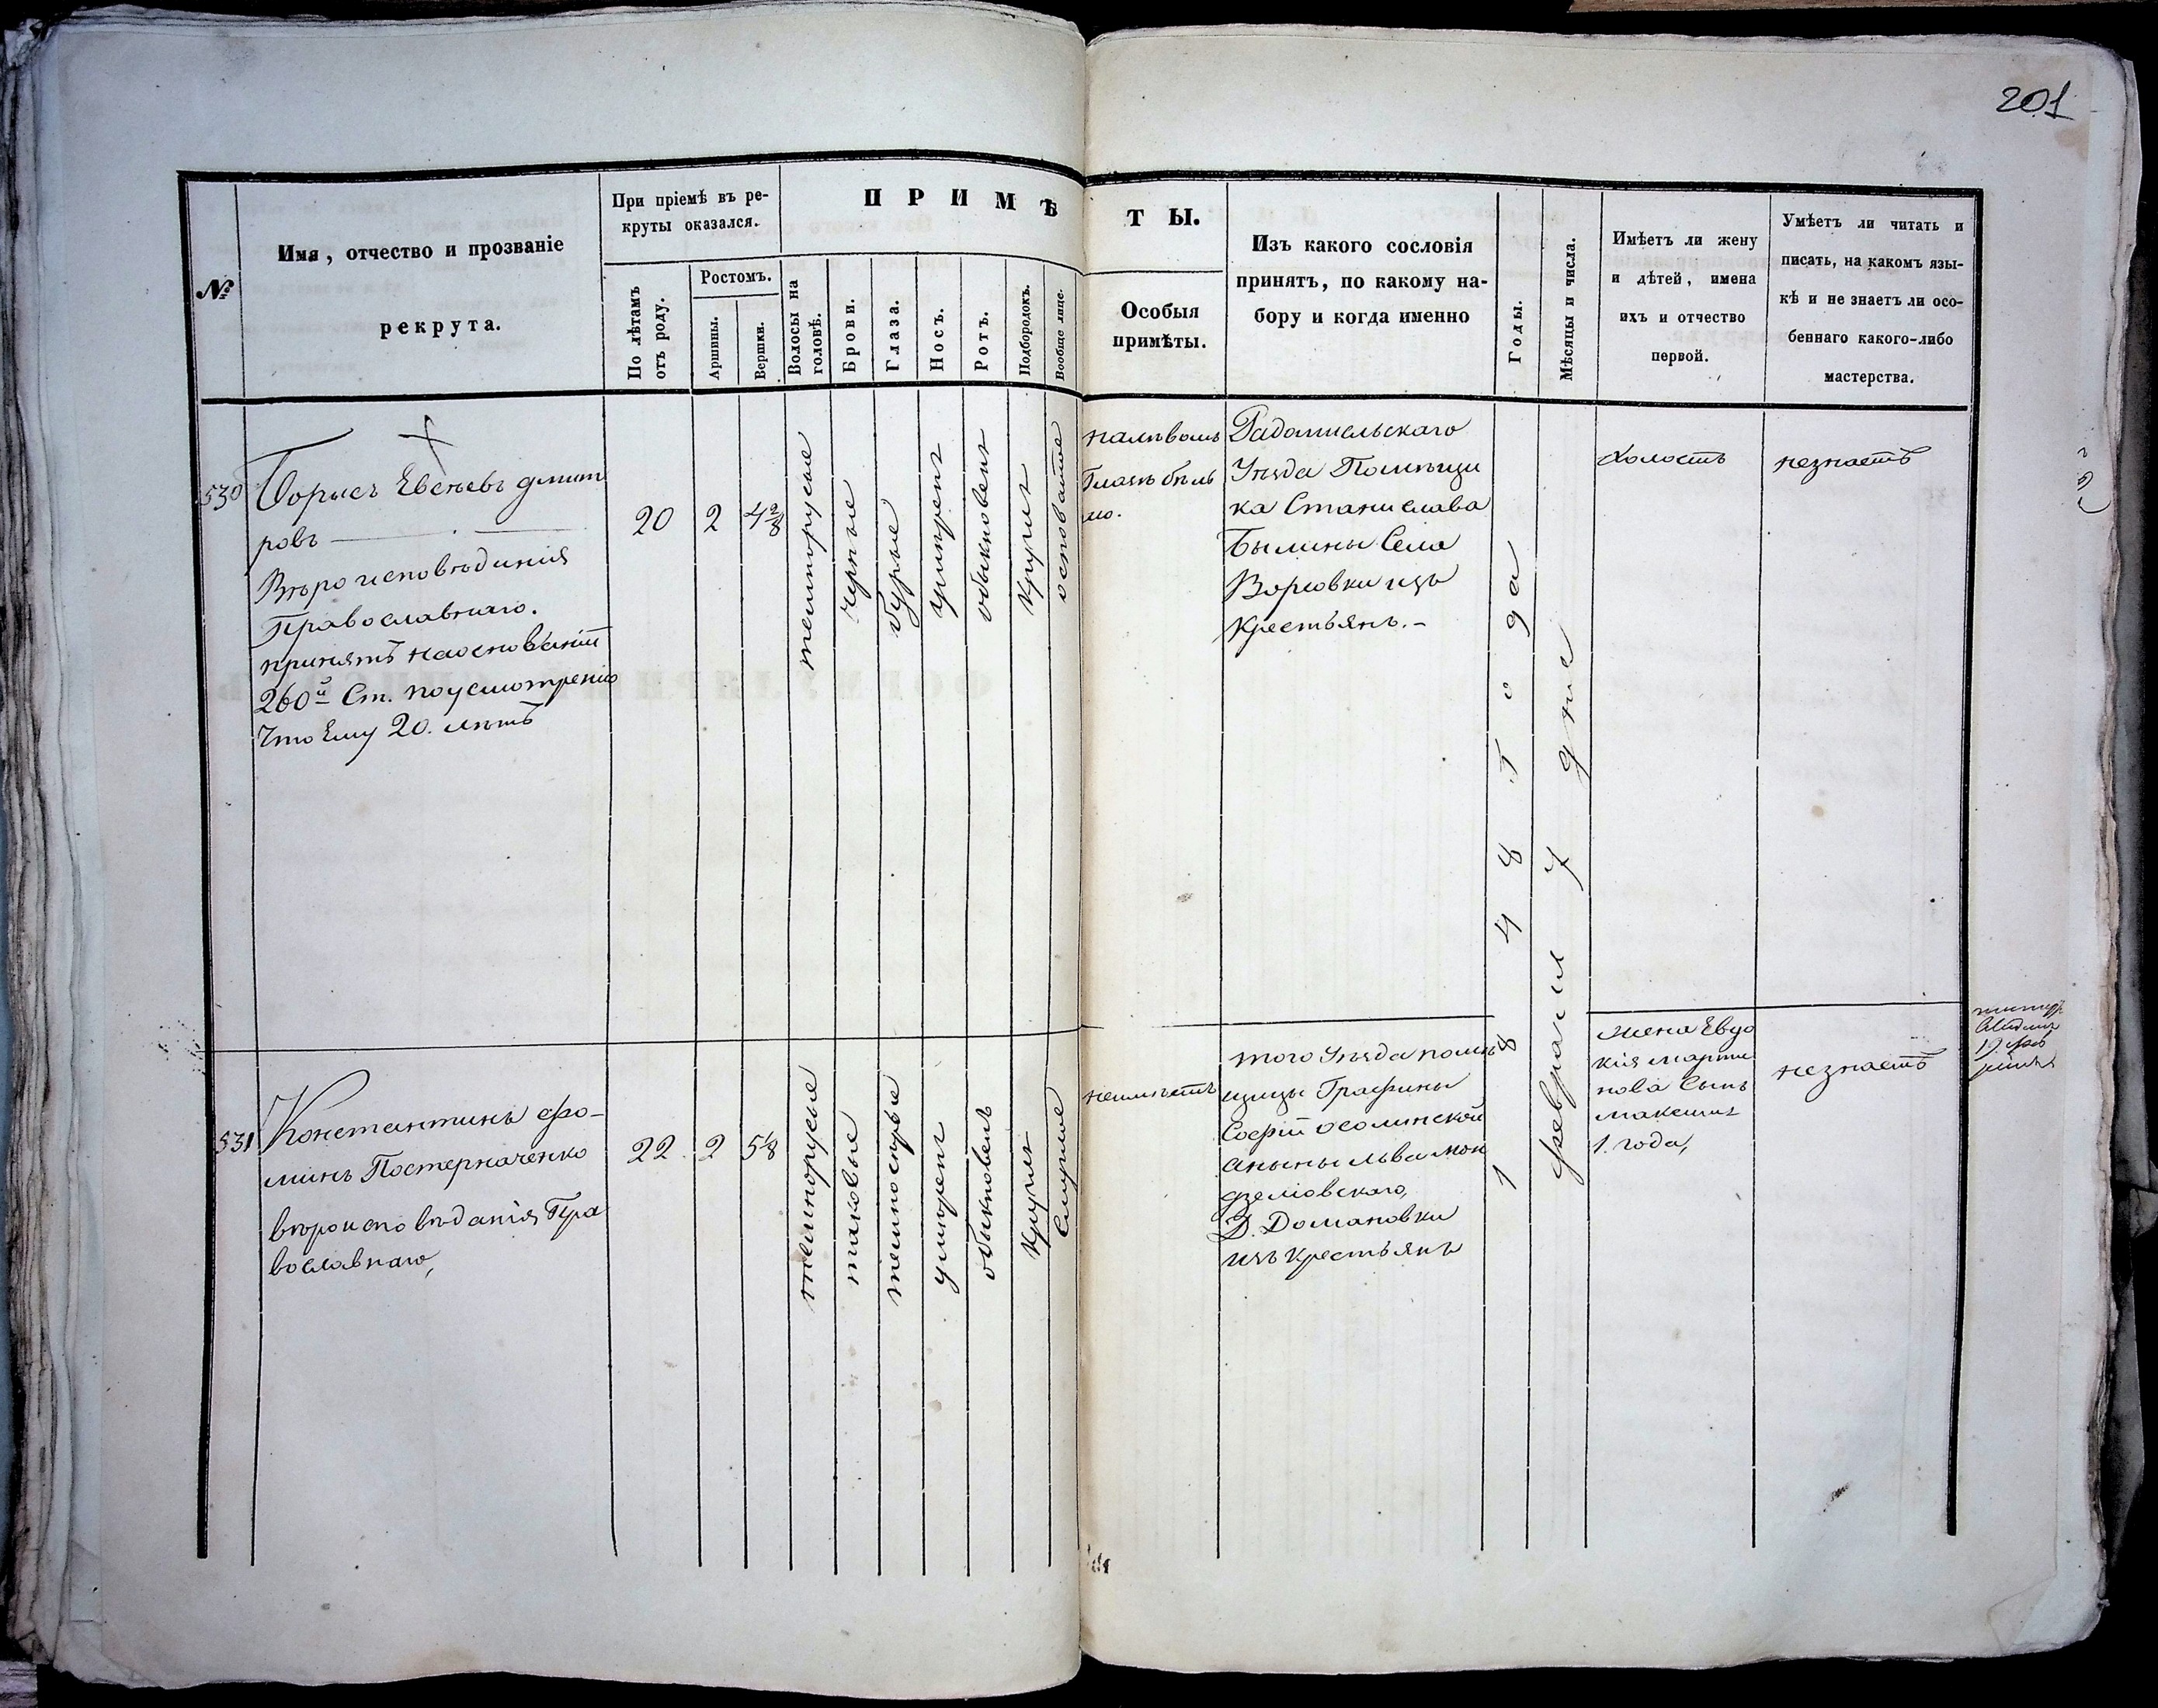 201
№
Имя, отчество и прозваніе
рекрута.
При пріемѣ въ ре-
круты оказался.
По лѣтамъ
отъ роду.
Ростомъ.
Аршины.
Вершки.
ПРИМѢ
Волосы на
головѣ.
Брови.
Глаза.
Носъ.
Ротъ.
Подбородокъ.
Вообще лице.
ТЫ.
Особыя
примѣты.
Изъ какого сословія
принятъ, по какому на-
бору и когда именно
Годы.
Мѣсяцы и числа.
Имѣетъ ли жену
и дѣтей, имена
ихъ и отчество
первой.
Умѣетъ ли читать и
писать, на какомъ язы-
кѣ и не знаетъ ли осо-
беннаго какого-либо
мастерства.
530
Борисъ Евсѣевъ дмит
ровъ
Вѣроисповѣдинія
Православнаго.
принятъ наоснованіи
260й Ст. поусмотренію
Что Ему 20. лѣтъ
20
2
4 2/8
темнорусые
черные
бурые
умѣренъ
обыкновенъ
круглъ
осповатое
налѣвомъ
Глазѣ бѣль
мо.
Радомысльскаго
Уѣзда Помѣщи
ка Станислава
Былины Села
Ворсовки изъ
Крестьянъ.-
1848 года
февраля 7 дня
Холостъ
незнаетъ
531
Константинъ фо-
минъ Постерначенко
вѣроисповѣданія Пра
вославнаго,
22.
2
5 1/8
темнорусые
таковые
темносѣрые
умѣренъ
обыкновенъ
круглъ
Смуглое
неимѣетъ
того Уѣзда помѣ
щицы Графины
Софіи осолинской
а нынѣ льва мон
дзелювскаго,
Д. Домановки
изъ крестьянъ
жена Евдо
кія марти
нова Сынъ
максимъ
1. года,
незнаетъ